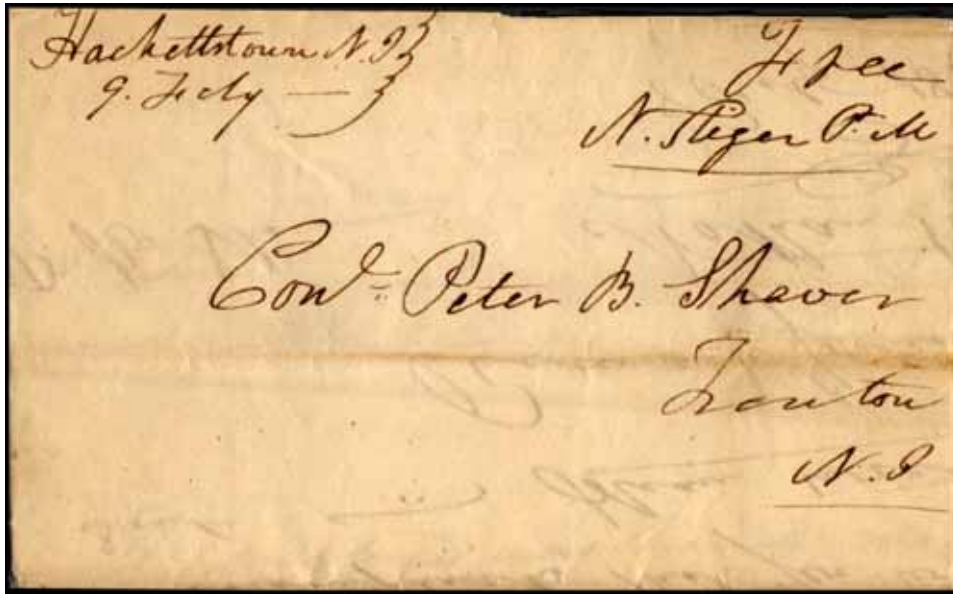 Hackettstown N.J
9. Feby
Free
N. Steger P. M
Conl. Peter B. Shaver
Trenton
N. J